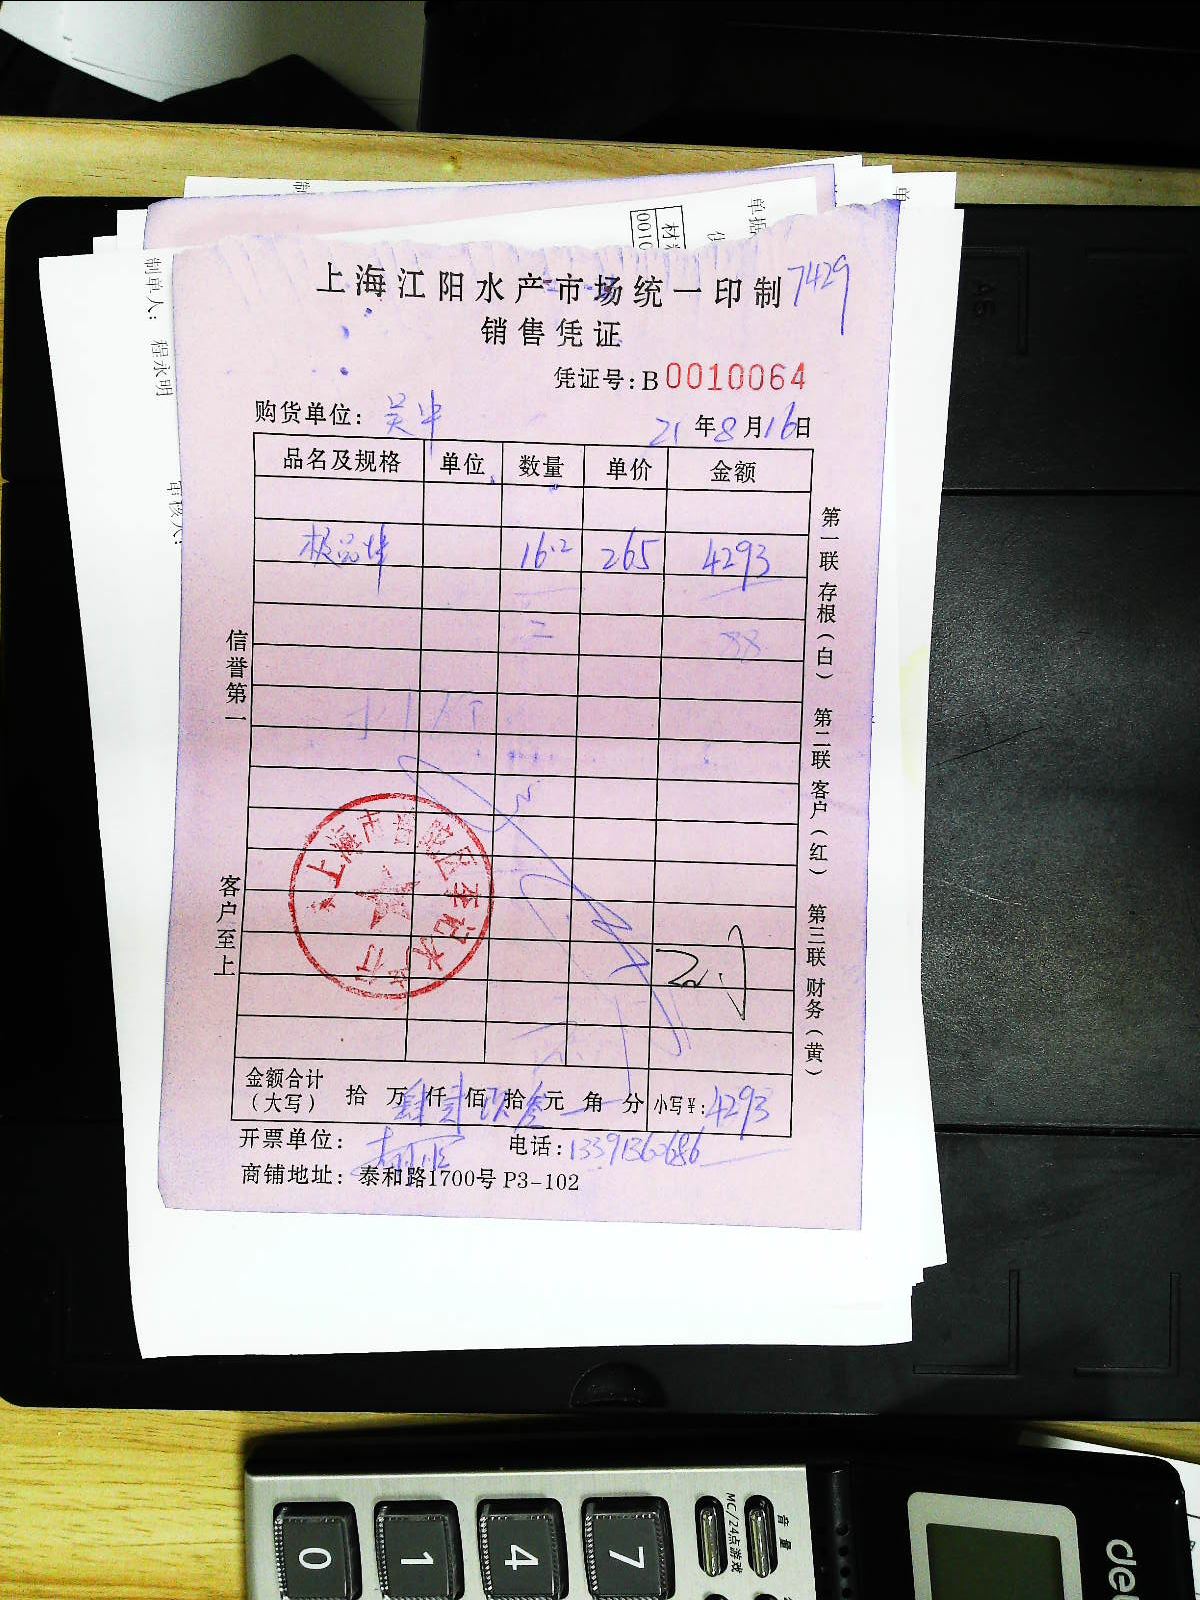 上海江阳水产市场统一印制 7429
销售凭证
凭证号：B 0010064
购货单位：吴中 21年8月16日
品名及规格 单位 数量 单价 金额
极品 16.2 265 4293
信誉第一
客户至上
第一联存根（白） 第二联客户（红） 第三联财务（黄）
上海市普陀区李记水产行
金额合计（大写） 拾万肆仟贰佰玖拾叁元角分 小写¥：4293
开票单位： 电话：13391360686
商铺地址：泰和路1700号 P3-102
制单人：程永明
审核人：
单据
材
0010
0
1
4
7
MC/24点游戏
音量
de
A5